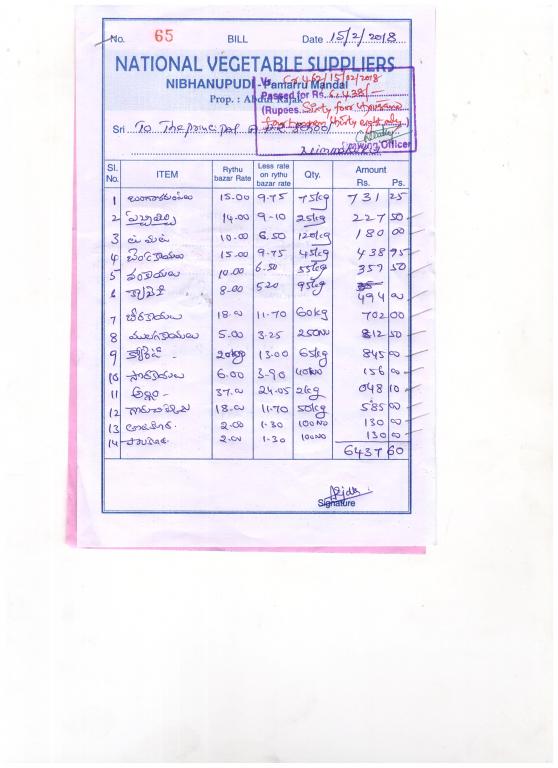 No. 65 BILL Date 15/2/2018
NATIONAL VEGETABLE SUPPLIERS
NIBHANUPUDI - Pamarru Mandal
Prop. : Abdul Rajak
Vr. Cr 462/15/02/2018
Passed for Rs. 6,438/-
(Rupees Sixty four
four hundred thirty eight only)
Drawing Officer
Sri To The principal
Sl. No. ITEM Rythu bazar Rate Less rate on rythu bazar rate Qty. Amount Rs. Ps.
1 15.00 9.75 75kg 731 25
2 14.00 9-10 25kg 227 50
3 10.00 6.50 120kg 180 00
4 15.00 9.75 45kg 438 75
5 వంకాయలు 10.00 6.50 55kg 357 50
6 8.00 520 95kg 494 00
7 బీరకాయలు 18.00 11.70 60kg 702 00
8 ములగకాయలు 5.00 3.25 250NO 812 50
9 20.00 13.00 65kg 845 00
10 సొరకాయలు 6.00 3-90 40NO 156 00
11 అల్లం 37.00 24.05 2kg 048 10
12 18.00 11.70 50kg 585 00
13 2.00 1.30 100NO 130 00
14 2.00 1.30 100NO 130 00
6437 60
Signature